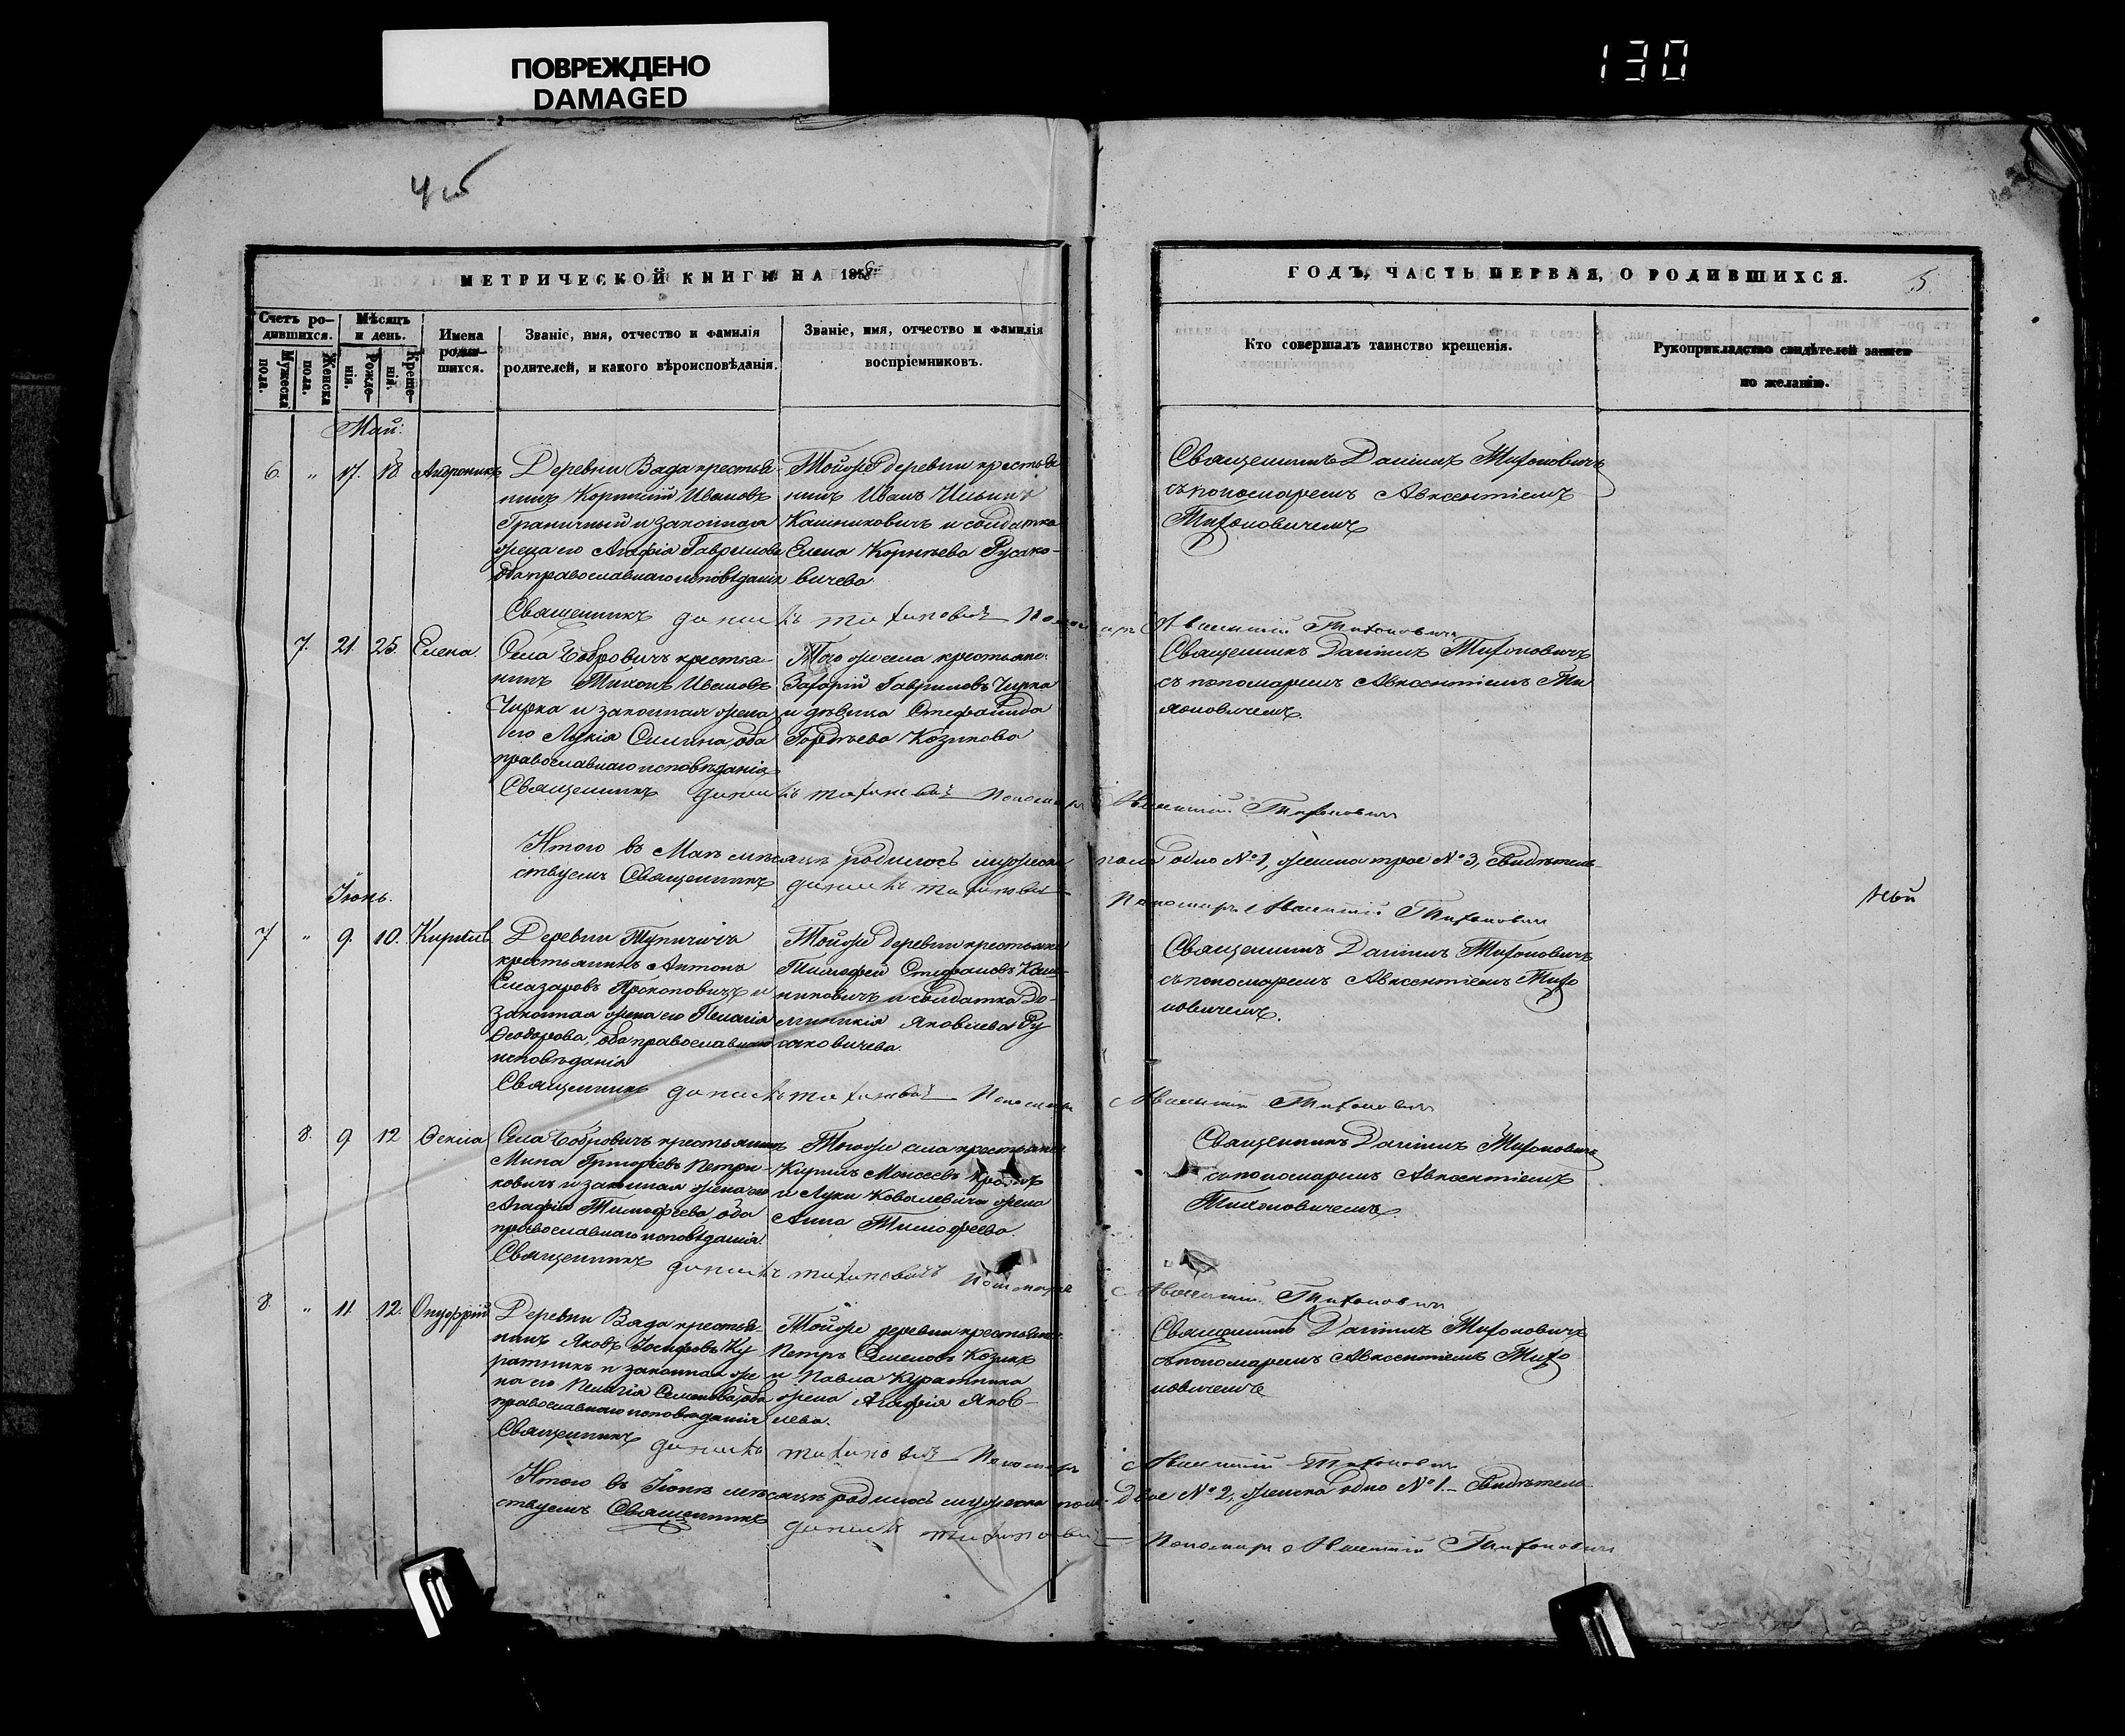 ПОВРЕЖДЕНО
DAMAGED
130
МЕТРИЧЕСКОЙ КНИГИ НА 185
ГОДЪ, ЧАСТЬ ПЕРВАЯ, О РОДИВШИХСЯ.
5.
Счетъ ро-
дившихся.
Мужеска
пола.
Женска
пола.
Мѣсяцъ
и день.
Рожде-
нія.
Креще-
нія.
Имена
роди-
шихся.
Званіе, имя, отчество и фамилія
родителей, и какого вѣроисповѣданія.
Званіе, имя, отчество и фамилія
воспріемниковъ.
Кто совершалъ таинство крещенія.
Рукоприкладство свидѣтелей записи
по желанію.
Май:
6. " 17. 18. Андроникъ
Деревни Вада крестья-
нинъ Корнилій Ивановъ
Граничный и законная
жена его Агафія Гаврилова
оба православнаго исповѣданія
Тойже деревни крестья
нинъ Иванъ Ильинъ
Кашниковичъ и солдатка
Елена Корнѣева Русако-
вичева.
Священникъ Даниилъ Тихоновичъ
съ пономаремъ Авксентіемъ
Тихоновичемъ
Священникъ Данилъ Тихоновичъ Пономарь Авксентій Тихоновичъ
7. 21. 25. Елена
Села Бобровичъ крестья-
нинъ Тихонъ Ивановъ
Чирка и законная жена
его Лукія Силина, оба
православнаго исповѣданія
Того же села крестьяне.
Захарій Гавриловъ Чирка
и дѣвица Стефанида
Гордѣева Козикова
Священникъ Даниилъ Тихоновичъ
съ пономаремъ Авксентіемъ Ти
хоновичемъ.
Священникъ Данилъ Тихоновичъ Пономарь Авксентій Тихоновичъ
Итого въ Маѣ мѣсяцѣ родилось мужеска пола одно №1, женска трое №3, Свидѣтель-
ствуемъ Священникъ Данилъ Тихоновичъ
Пономарь Авксентій Тихоновичъ
Іюнь.
7 " 9. 10. Кириллъ
Деревни Тупичичъ
крестьянинъ Антонъ
Елазаровъ Прокоповичъ и
законная жена его Пелагія
Ѳеодорова, оба православнаго
исповѣданія
Тойже деревни крестьяне
Тимофей Стефановъ Каш-
никовичъ и солдатка До-
миникія Яковлева Ру
саковичева.
Священникъ Даниилъ Тихоновичъ
съ пономаремъ Авксентіемъ Тихо
новичемъ.
Священникъ Данилъ Тихоновичъ Пономарь Авксентій Тихоновичъ
8. 9 12 Ѳекла
Села Бобровичъ крестьянинъ
Мина Григорьевъ Петри-
ковичъ и законная жена его
Агафія Тимофѣева, оба
православнаго исповѣданія.
Тогоже села крестьяне
Кирилъ Моисеевъ
и Луки Ковалевича жена
Анна Тимофеева.
Священникъ Даниилъ Тихоновичъ
съ пономаремъ Авксентіемъ
Тихоновичемъ.
Священникъ Данилъ Тихоновичъ Пономарь Авксентій Тихоновичъ
8. " 11. 12. Онуфрій
Деревни Вада крестья-
нинъ Яковъ Іосифовъ Ку
ратникъ и законная же
на его Пелагія Семенова, оба
православнаго исповѣданія
Тойже деревни крестьяне:
Петръ Семеновъ Козикъ
и Павла Куратника
жена Агафія Яков-
лева.
Священникъ Даниилъ Тихоновичъ
съ пономаремъ Авксентіемъ Тихо
новичемъ
Священникъ Данилъ Тихоновичъ Пономарь Авксентій Тихоновичъ
Итого въ Іюнѣ мѣсяцѣ родилось мужеска пола двое №2, женска одно №1. Свидѣтель-
ствуемъ Священникъ Данилъ Тихоновичъ Пономарь Авксентій Тихоновичъ